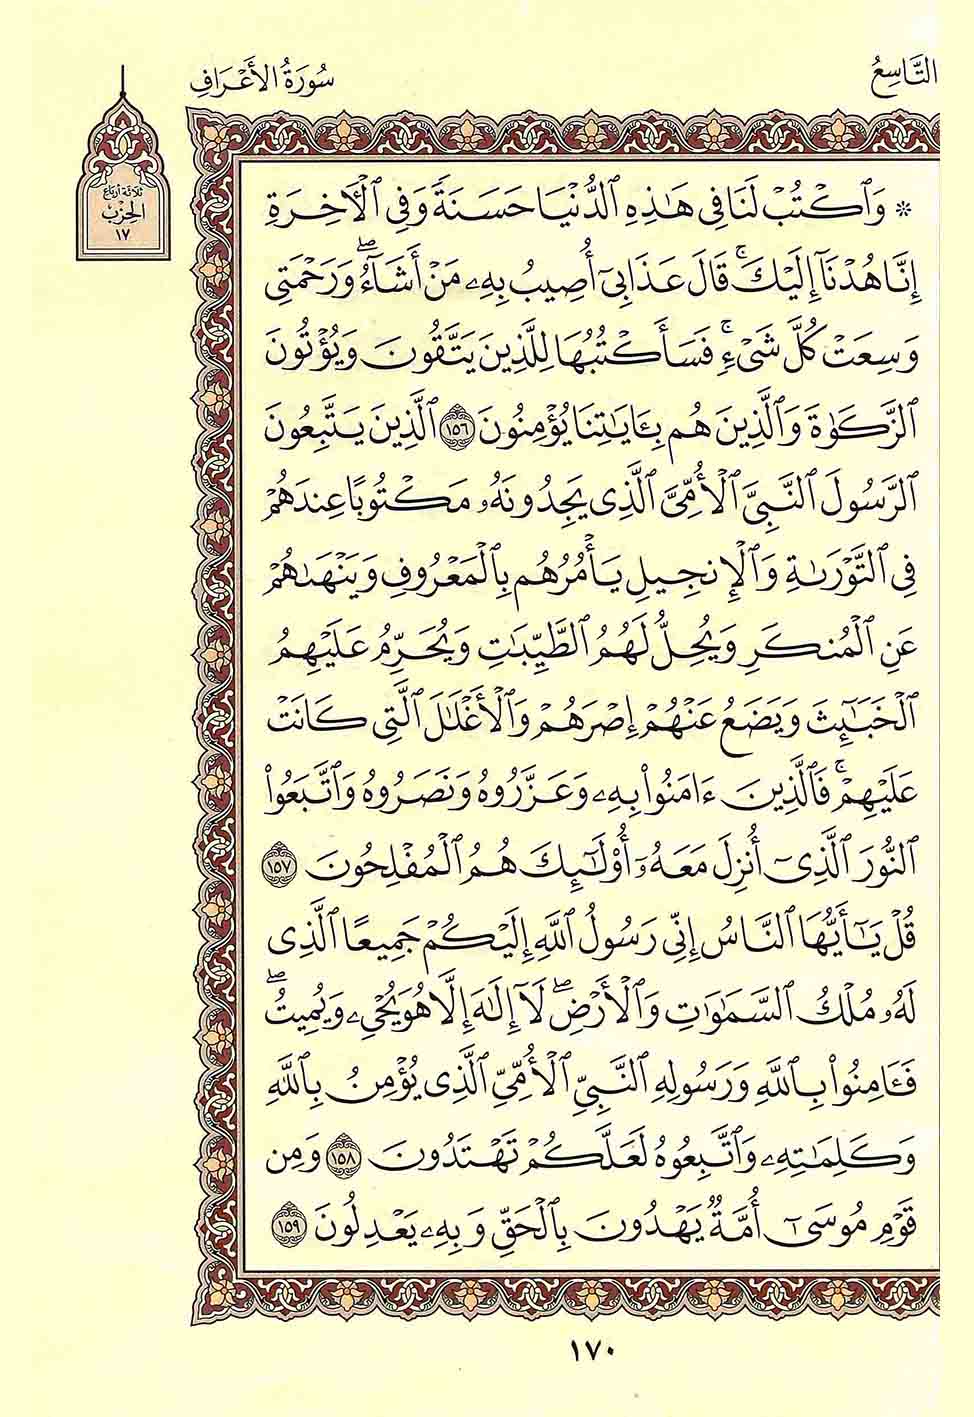 التَّاسِعُ
سُورَةُ الأَعْرَافِ
ثلاثة أرباع
الحزب
١٧
* وَٱكْتُبْ لَنَا فِى هَٰذِهِ ٱلدُّنْيَا حَسَنَةً وَفِى ٱلْأٓخِرَةِ
إِنَّا هُدْنَآ إِلَيْكَۚ قَالَ عَذَابِىٓ أُصِيبُ بِهِۦ مَنْ أَشَآءُۖ وَرَحْمَتِى
وَسِعَتْ كُلَّ شَىْءٍۚ فَسَأَكْتُبُهَا لِلَّذِينَ يَتَّقُونَ وَيُؤْتُونَ
ٱلزَّكَوٰةَ وَٱلَّذِينَ هُم بِـَٔايَٰتِنَا يُؤْمِنُونَ ١٥٦ ٱلَّذِينَ يَتَّبِعُونَ
ٱلرَّسُولَ ٱلنَّبِىَّ ٱلْأُمِّىَّ ٱلَّذِى يَجِدُونَهُۥ مَكْتُوبًا عِندَهُمْ
فِى ٱلتَّوْرَىٰةِ وَٱلْإِنجِيلِ يَأْمُرُهُم بِٱلْمَعْرُوفِ وَيَنْهَىٰهُمْ
عَنِ ٱلْمُنكَرِ وَيُحِلُّ لَهُمُ ٱلطَّيِّبَٰتِ وَيُحَرِّمُ عَلَيْهِمُ
ٱلْخَبَٰٓئِثَ وَيَضَعُ عَنْهُمْ إِصْرَهُمْ وَٱلْأَغْلَٰلَ ٱلَّتِى كَانَتْ
عَلَيْهِمْۚ فَٱلَّذِينَ ءَامَنُوا۟ بِهِۦ وَعَزَّرُوهُ وَنَصَرُوهُ وَٱتَّبَعُوا۟
ٱلنُّورَ ٱلَّذِىٓ أُنزِلَ مَعَهُۥٓ أُو۟لَٰٓئِكَ هُمُ ٱلْمُفْلِحُونَ ١٥٧
قُلْ يَٰٓأَيُّهَا ٱلنَّاسُ إِنِّى رَسُولُ ٱللَّهِ إِلَيْكُمْ جَمِيعًا ٱلَّذِى
لَهُۥ مُلْكُ ٱلسَّمَٰوَٰتِ وَٱلْأَرْضِۖ لَآ إِلَٰهَ إِلَّا هُوَ يُحْىِۦ وَيُمِيتُۖ
فَـَٔامِنُوا۟ بِٱللَّهِ وَرَسُولِهِ ٱلنَّبِىِّ ٱلْأُمِّىِّ ٱلَّذِى يُؤْمِنُ بِٱللَّهِ
وَكَلِمَٰتِهِۦ وَٱتَّبِعُوهُ لَعَلَّكُمْ تَهْتَدُونَ ١٥٨ وَمِن
قَوْمِ مُوسَىٰٓ أُمَّةٌ يَهْدُونَ بِٱلْحَقِّ وَبِهِۦ يَعْدِلُونَ ١٥٩
١٧٠